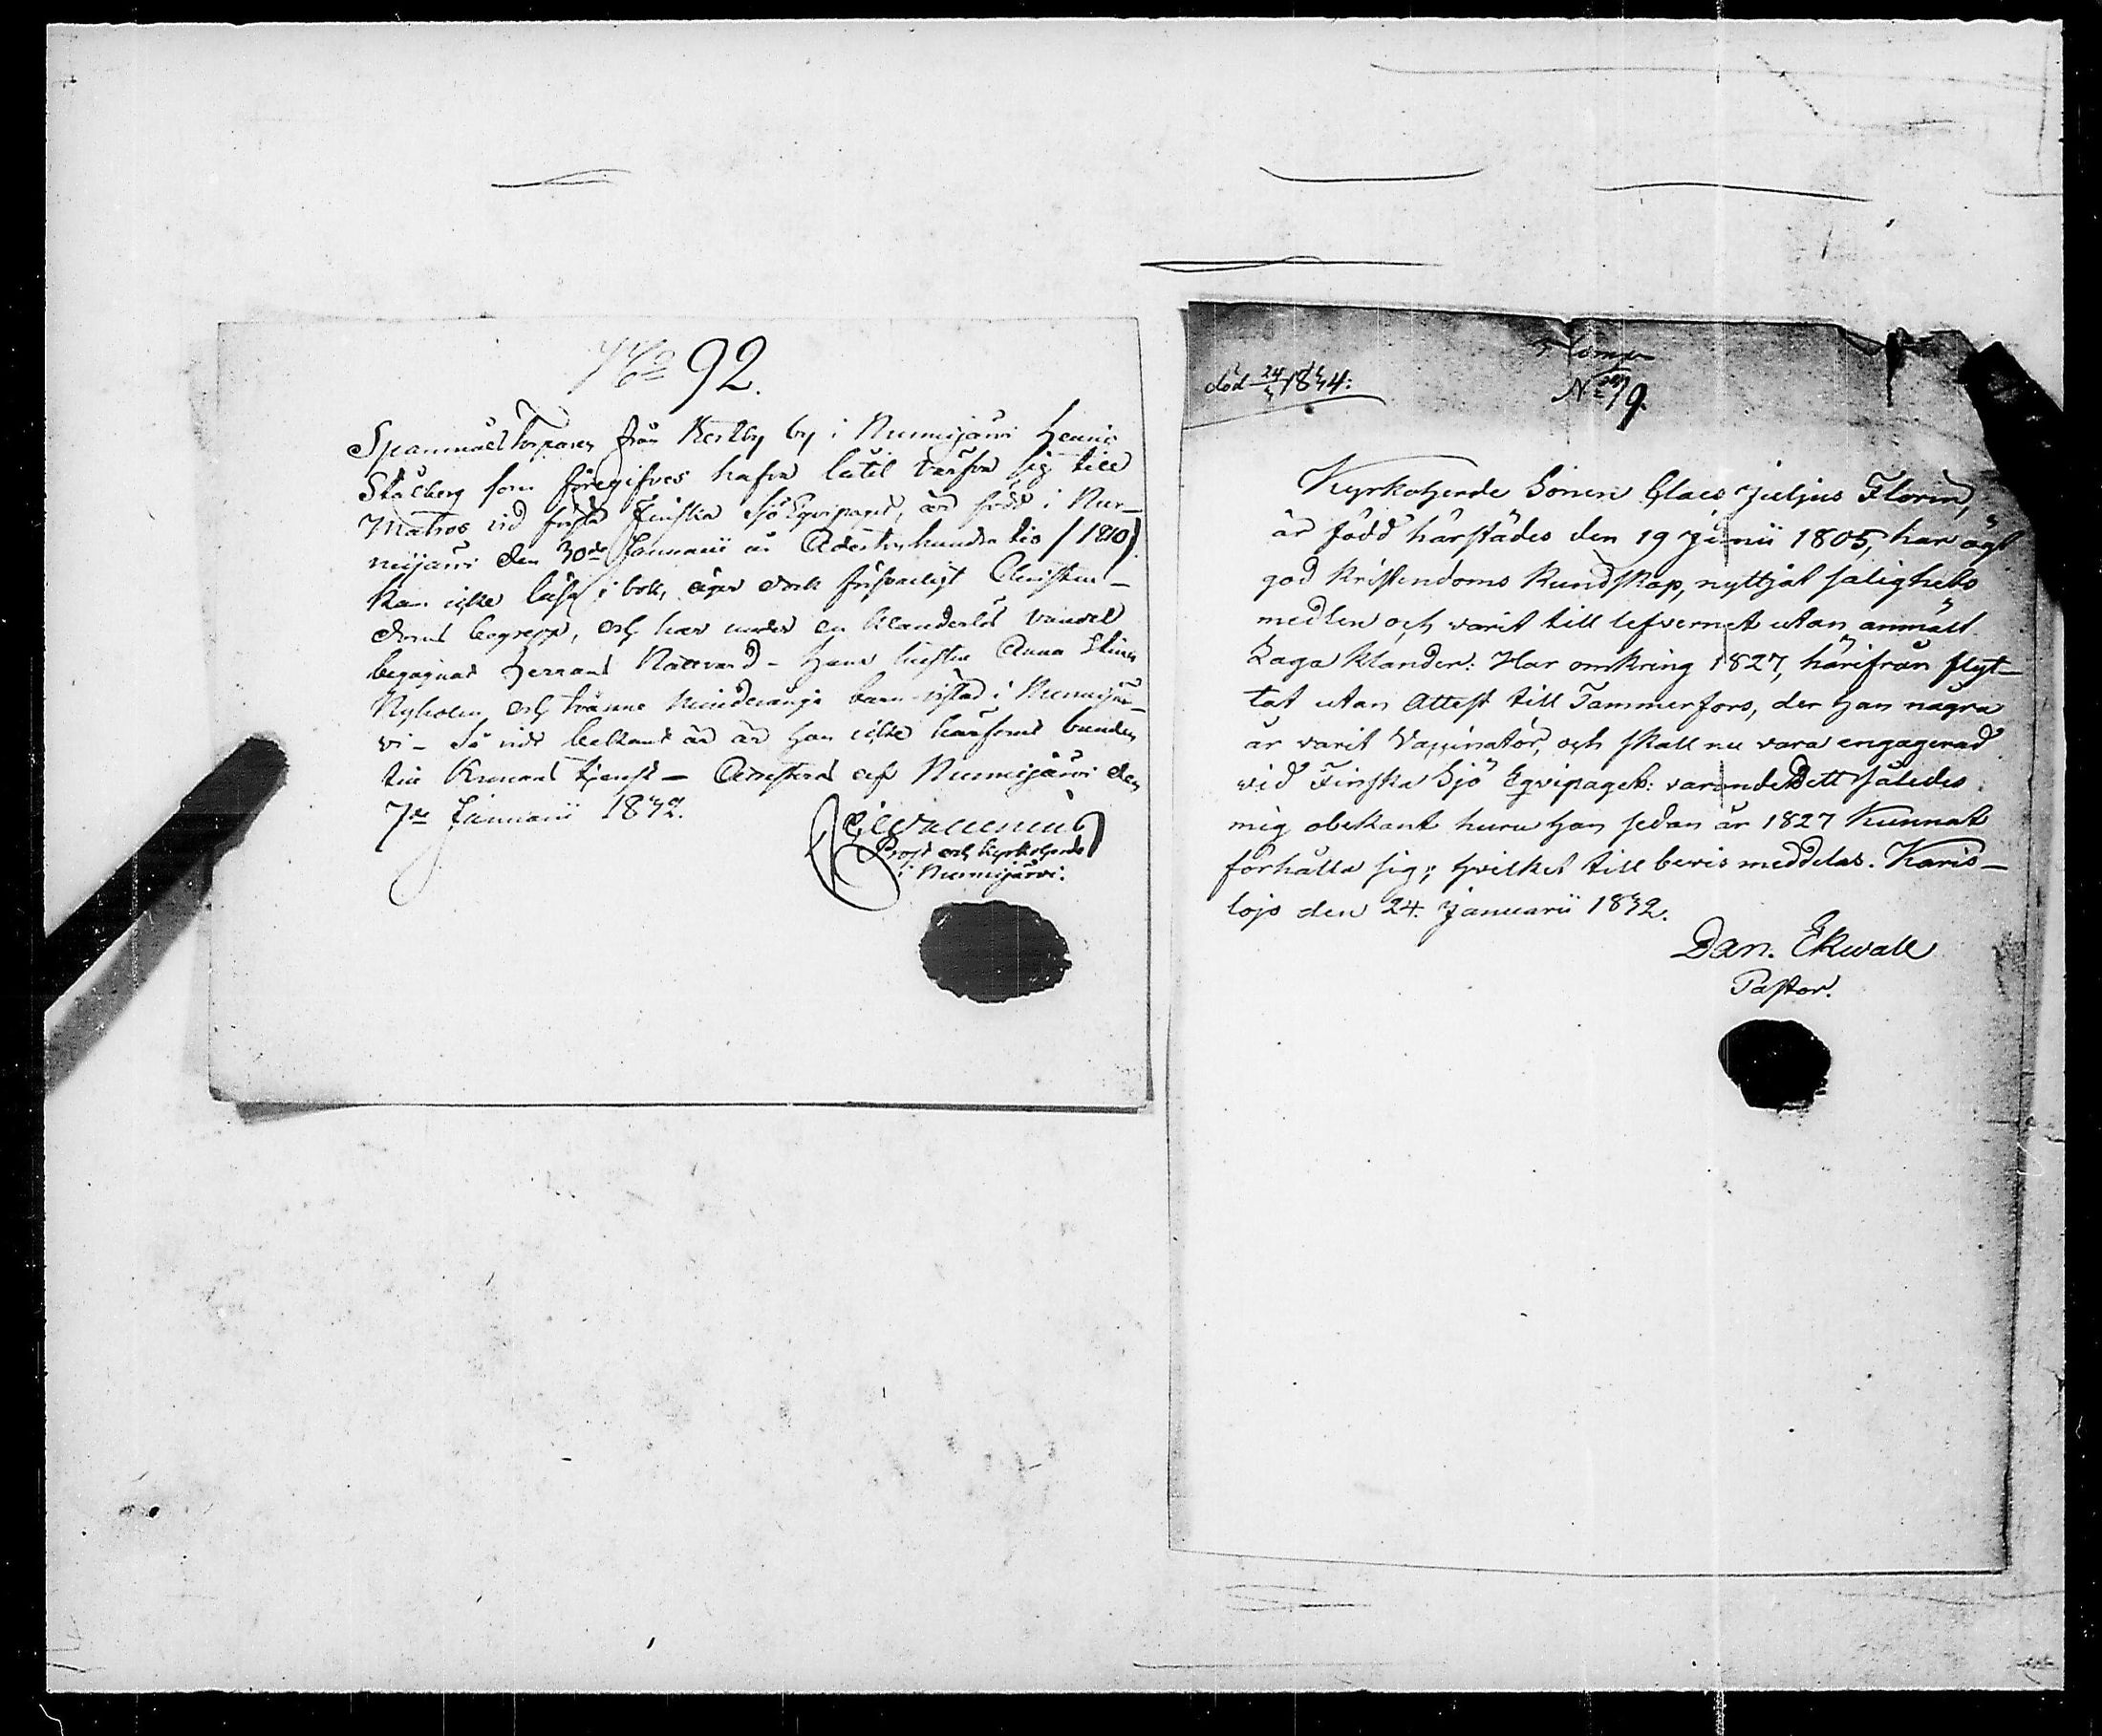 No 92.
Spanmåls Torparen från Kerkby by i Nurmijärvi Henric
Stålberg som föregifves hafva låtit värfva sig till
Matros vid första Finska Sjö Equipaget, är född i Nur-
mijärvi den 30de Januarii år Adertonhundra tio /1810/
kan icke läsa i bok, äger dock försvarligt Christen-
doms begrepp, och har under en klanderlös vandel
begagnat Herrans Nattvard - Hans hustru Anna Stina
Nyholm och tvänne minderåriga barn vistas i Nurmijär-
vi - Så vidt bekant är är han icke härförut bunden
till Kronans tjenst - Attesteras af Nurmijärvi den
7de Januarii 1832.
Prost och Kyrkoherde
i Nurmijärvi.
död 24/ 1834:
No 79.
Kyrkoherde Sonen Claes Juljus Florin,
är född härstädes den 19 Junii 1805, har ägt
god Kristendoms Kundskap, nyttjat salighets
medlen och varit till lefvernet utan anmält
Laga klander: Har omkring 1827, härifrån flyt-
tat utan Attest till Tammerfors, der han några
år varit Vaccinatör, och skall nu vara engagerad
vid Finska Sjö Eqvipaget: varande Dett således
mig obekant huru han sedan år 1827 kunnat
förhålla sig; hvilket till bevis meddelas. Karis-
lojo den 24. Januarii 1832.
Dan. Ekwall
Pastor.